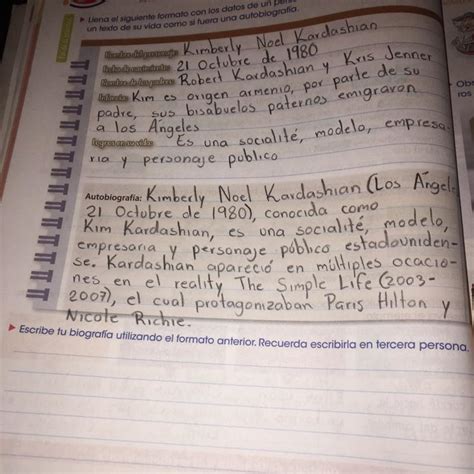 ▶ Llena el siguiente formato con los datos de un
un texto de su vida como si fuera una autobiografía.
Nombre del personaje: Kimberly Noel Kardashian
Fecha de nacimiento: 21 Octubre de 1980
Nombre de los padres: Robert Kardashian y Kris Jenner
Infancia: Kim es origen armenio, por parte de su
padre, sus bisabuelos paternos emigraron
a los Ángeles
Logros en su vida: Es una socialité, modelo, empresa-
ria y personaje publico
Autobiografía: Kimberly Noel Kardashian (Los Ángel
21 Octubre de 1980), conocida como
Kim Kardashian, es una socialité, modelo,
empresaria y personaje público estadouniden-
se. Kardashian apareció en múltiples ocacio-
nes en el reality The Simple Life (2003-
2007), el cual protagonizaban Paris Hilton y
Nicole Richie.
▶ Escribe tu biografía utilizando el formato anterior. Recuerda escribirla en tercera persona.
▶ Obs
ros